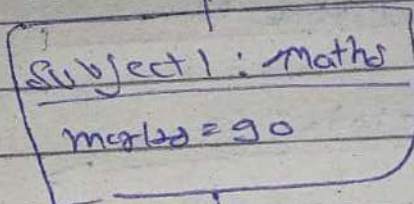 Subject 1 : Maths
marks = 90